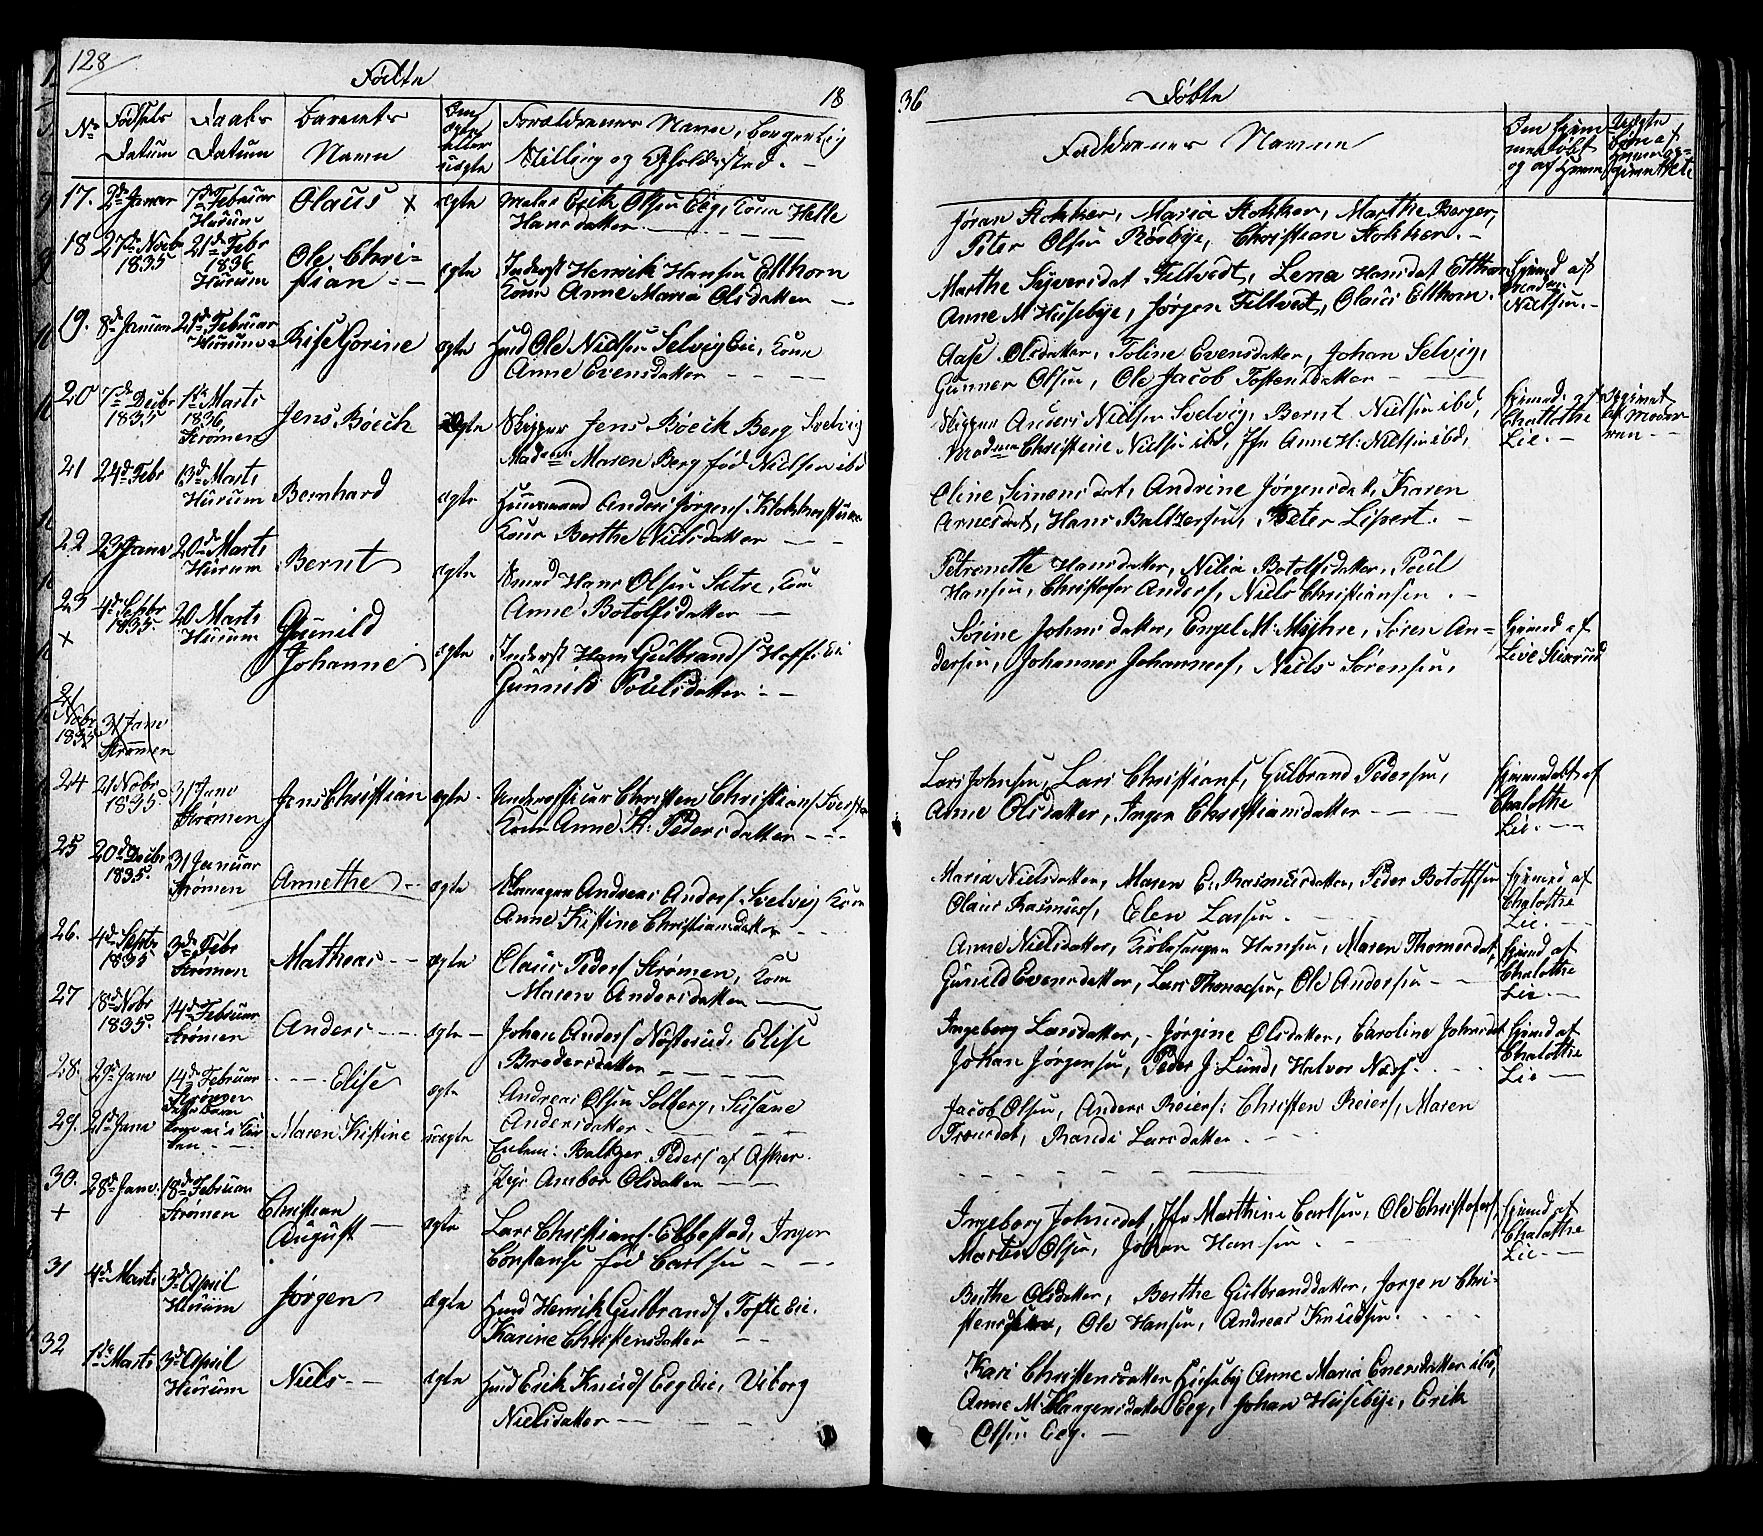 128
Fødte
18
No
Fødsels
Datum
Daabs
Datum
Barnets
Navn
Om
ægte
eller
uægte
Forældrenes Navn, borgerlig
Stilling og Opholdssted.
17. 2de Januar 7de Februar Hurum Olaus x ægte Erik Olsen Eeg, Kone Helle
Hansdatter
18 27de Novbr 1835 21de Febr 1836 Hurum Ole Chri-
stian ægte Inderst Henrik Hansen Ellhorn
Kone Anne Maria Olsdatter
19. 8de Januar 21de Februar Hurum Gorine ægte Huusmd Ole Nielsen Selvig Eie, Kone
Anne Evensdatter
20 7de Decbr 1835 1ste Marts 1836, Strømen Jens Böeck ægte Skipper Jens Böeck Berg Svelvig
Madame Maren Berg fød Nielsen ibd
21 24de Febr 13de Marts Hurum Bernhard ægte Huusmand Anders Jørgens. Klokkerstuen
Kone Berthe Nielsdatter
22 23de Janu 20de Marts Hurum Bernt ægte Hans Olsen Sætre, Kone
Anne Botolfsdatter
23 x 4de Septbr 1835. 20 Marts Hurum Gunild
Johanne ægte Inderst Hans Gulbrands.
Gunnild Poulsdatter
21 Nobr 1835 31 Janu Strømen
24 21 Nobr 1835 31 Janu Strømen Jens Christian ægte Underofficer Christen Christians.
Kone Anne K: Pedersdatter
25 20de Decbr 1835. 31 Januar Strømen Annethe ægte Andreas Anders. Svelvig Kone
Anne Kistine Christiansdatter
26. 4de Septbr 1835 3de Febr Strømen Matheas ægte Claus Peders. Strømen, Kone
Maren Andersdatter
27 18de Nobr 1835. 14de Februar Strømen Anders ægte Johan Anders. Nøsterud, Elise
Brodersdatter
28. 29de Janu 14de Februar Strømen Elise ægte Andreas Olsen Solberg, Susane
Andersdatter
29. 21de Janu Maren Kistine uægte Balzer Peders. af Asker.
Pige Ambor Olsdatter
30. + 28de Janu: 18de Februar Strømen Christian
August ægte Lars Christians. Ebbestad, Inger
Constanse fød Carlsen
31 4de Marts 3de April Hurum Jørgen ægte Huusmd Henrik Gulbrands. Tofte Eie.
Karine Christensdatter
32 1ste Marts 3de April Hurum Niels ægte Huusmd Erik Knuds. Eeg Eie, Viborg
Nielsdatter
36
Døbte
Faddernes Navne
Om Hjem-
medøbt
og af Hvem
Jøran Stokker, Maria Stokker, Marthe Berger,
Peter Olsen Rösbye, Christian Stokker.
Marthe Syversdat Filtvedt, Lena Hansdat Ellhorn
Anne M Husebye, Jørgen Filtvedt, Olaus Ellhorn.
Hjemd af
Madm
Nielsen.
Aase Olsdatter, Toline Evensdatter, Johan Selvig,
Gunner Olsen, Ole Jacob Tostensdatter
Skipper Anders Nielsen Svelvig, Bernt Nielsen ibd,
Madme Christine Nielsen ibd, Jfr Anne H: Nielsen ibd,
Hjemd: af
Chalotthe
Lie.
Eline Simensdat, Andrine Jørgensdat, Karen
Arnesdat, Hans Baltzersen, Peter Lipert.
Petronette Hansdatter, Nilia Botolfsdatter, Poul
Hansen, Christofer Anders, Niels Christiansen.
Sørine Johnsdatter, Engel M: Myhre, Søren An-
dersen, Johannes Johannes, Niels Sørensen,
Hjemd af
Live
Lars Johnsen, Lars Christians, Gulbrand Pedersen,
Anne Olsdatter, Inger Christiansdatter
Hjemmedøbt af
Chalotthe
Lie.
Maria Nielsdatter, Maren E: Rasmusdatter, Peder Botolfsen
Olaus Rasmus, Elen Larsen.
Hjemd af
Chalotthe
Lie.
Anne Nielsdatter, Hansen, Maren Thomesdat,
Gunild Evensdatter, Lars Thomesen, Ole Andersen
Hjemd af
Chalotthe
Lie.
Ingeborg Larsdatter, Jørgine Olsdatter, Caroline Johnsdat
Johan Jørgensen, Peder J: Lund, Halvor
Hjemd af
Chalotthe
Lie
Jacob Olsen, Anders Reiers: Christen Reiers, Maren
Randi Larsdatter.
Ingeborg Johnsdat, Jfr Marthine Carlsen, Ole Christofers,
Martin Olsen, Johan Hansen.
Hjemd af
Chalotthe
Lie.
Berthe Olsdatter, Berthe Gulbrandsdatter, Jørgen Chri-
stensen, Ole Hansen, Andreas Knudsen.
Kari Christensdatter Husebye Anne Maria Evensdatter ibd,
Anne M: Haagensdatter Eeg, Johan Husebye, Erik
Olsen Eeg.